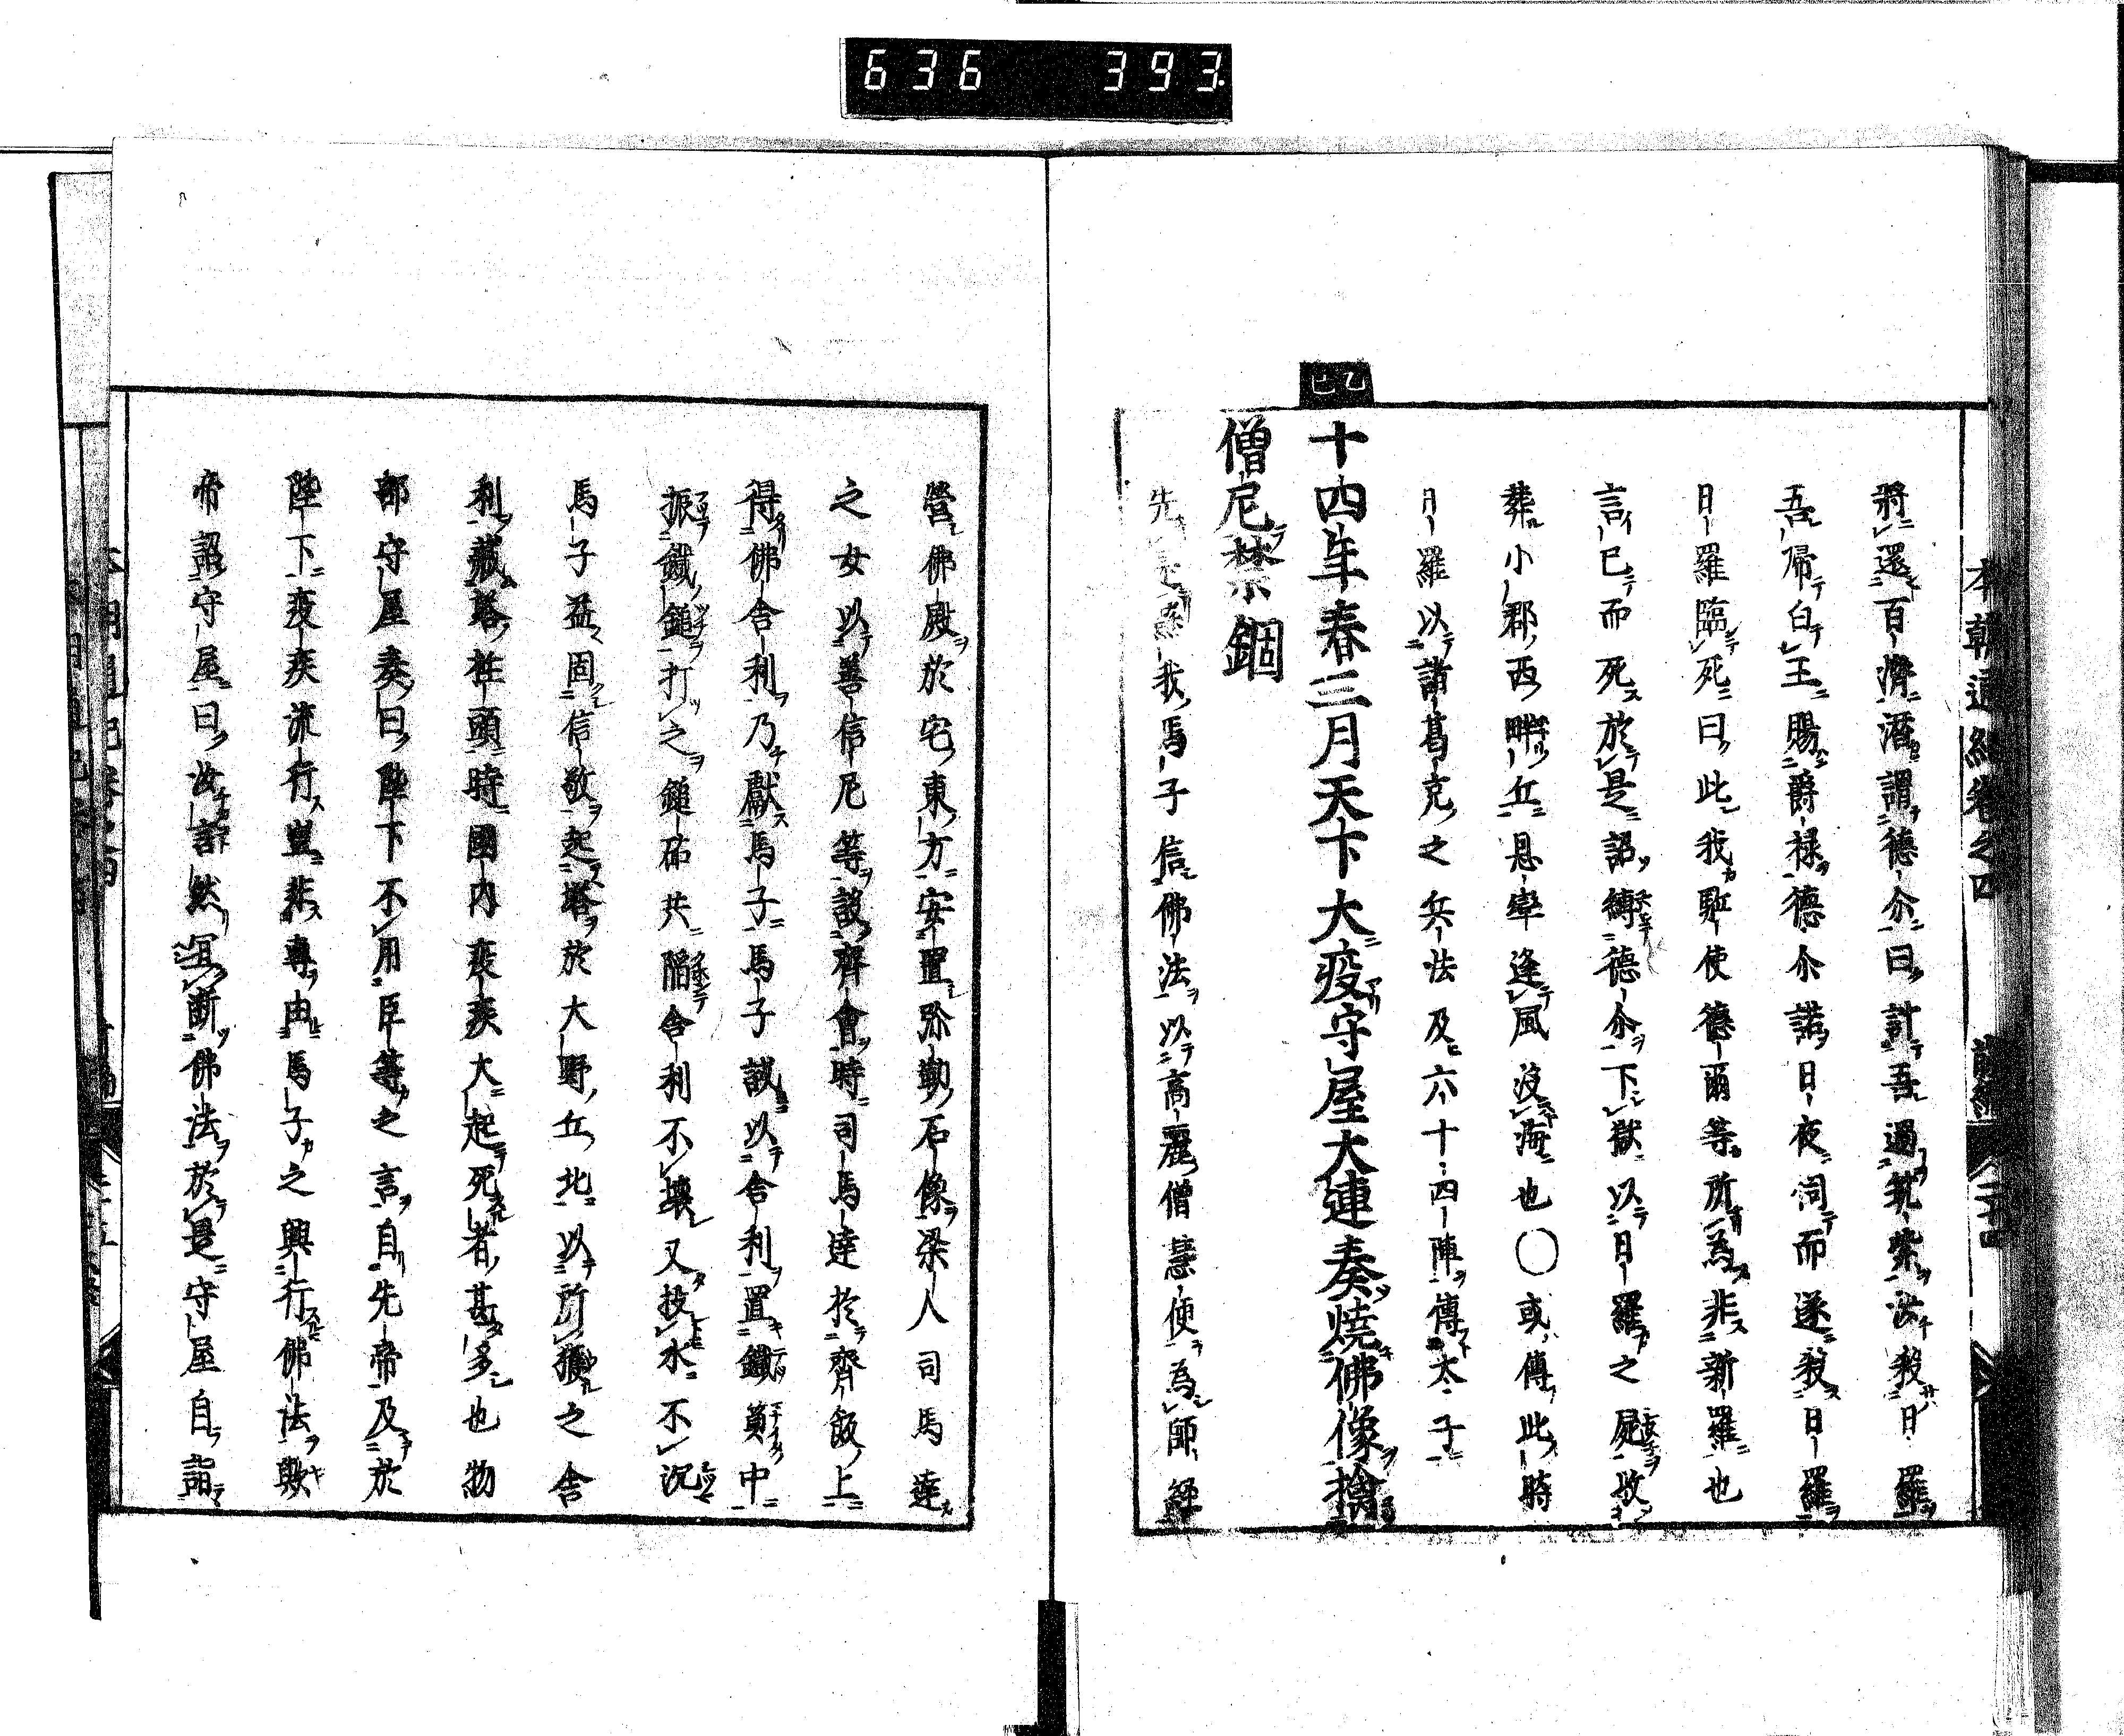 636 393
本朝通紀卷之四 前編 二十四
將還百濟潛謂德尒曰計吾過筑紫汝殺日羅
吾帰白王賜爵禄德尒諾日夜伺而遂殺日羅
日羅臨死曰此我駈使德爾等所為非新羅也
言已而死於是詔縛德尒下獄以日羅之屍收
葬小郡西畔丘恩率逢風没海也○或傳此時
日羅以諸葛亮之兵法及六十四陣傳太子
乙巳
十四年春三月天下大疫守屋大連奏燒佛像擒
僧尼禁錮
先 我馬子信佛法以高麗僧慧便為師
營佛殿於宅東方安置弥勒石像梁人司馬達
之女以善信尼等設齊會時司馬達於齊飯上
得佛舎利乃獻馬子馬子試以舎利置鐵質中
振鐵鎚打之鎚砧共陥舎利不壊又投水不沉
馬子益固信敬起塔於大野丘北以所獲之舎
利藏塔柱頭時國内疾大起死者甚多也物
部守屋奏曰陛下不用臣等之言自先帝及於
陛下疫疾流行豈非専由馬子之興行佛法歟
帝詔守屋曰汝言然冝断佛法於是守屋自詣